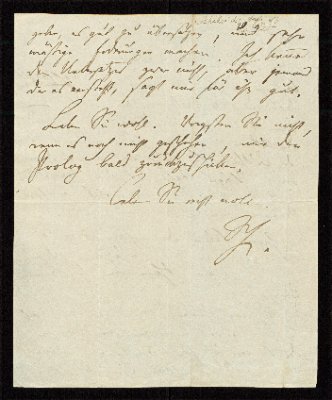 geben, es gut zu übersetzen, und sehr
mäßige Foderungen machen. Ich kenne
die Uebersetzer zwar nicht, aber jemand
der es versteht, sagt mir
Leben Sie wohl. Vergessen Sie nicht,
wenn es noch nicht geschehen, mir den
Prolog bald zurückzuschicken.
Leben Sie recht wohl.
Sch.